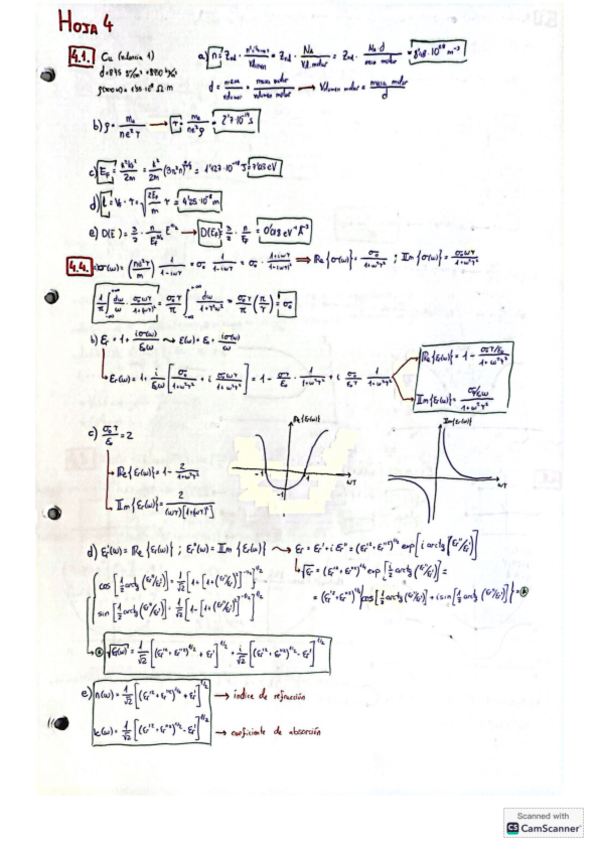 HOJA 4
4.1. Cu (valencia 1)
a) n = Zval · Na / Vd.molar = Zval · Na·d / masa molar
d = masa / volumen = masa molar / volumen molar → Volumen molar = masa molar / d
b) ρ = m / ne²τ → τ = m / ne²ρ = 2'7·10⁻¹⁴ s
c) E_F = ħ²k² / 2m = ħ² / 2m (3π²n)^2/3 = 7'03 eV
d) l = v_F · τ = √(2E_F / m) τ = 4'25·10⁻⁸ m
e) D(E) = 3/2 · n / E_F^3/2 E^1/2 → D(E_F) = 3/2 · n / E_F
4.4. a) σ(ω) = (ne²τ / m) 1 / 1-iωτ = σ₀ 1 / 1-iωτ = σ₀ · 1+iωτ / 1+ω²τ² ⇒ Re{σ(ω)} = σ₀ / 1+ω²τ² ; Im{σ(ω)} = σ₀ωτ / 1+ω²τ²
b) εr = 1 + iσ(ω) / ε₀ω
εr(ω) = 1 + i / ε₀ω [σ₀ / 1+ω²τ² + i σ₀ωτ / 1+ω²τ²] = 1 - σ₀τ / ε₀ · 1 / 1+ω²τ²
Re{εr(ω)} = 1 - σ₀τ/ε₀ / 1+ω²τ²
Im{εr(ω)} = σ₀/ε₀ω / 1+ω²τ²
c) σ₀τ / ε₀ = 2
Re{εr(ω)} = 1 - 2 / 1+ω²τ²
Im{εr(ω)} = 2 / (ωτ)[1+(ωτ)²]
Re{εr(ω)}
-1
1
ωτ
-1
Im{εr(ω)}
ωτ
d) εr'(ω) = Re{εr(ω)} ; εr''(ω) = Im{εr(ω)} ⇝ εr = εr' + iεr'' = (εr'² + εr''²)^1/2 exp[i arctg(εr''/εr')]
√εr = (εr'² + εr''²)^1/4 exp[i/2 arctg(εr''/εr')] =
= (εr'² + εr''²)^1/4 {cos[1/2 arctg(εr''/εr')] + i sin[1/2 arctg(εr''/εr')]} =
cos[1/2 arctg(εr''/εr')] = 1/√2 [1 + [1 + (εr''/εr')²]^-1/2]^1/2
sin[1/2 arctg(εr''/εr')] = 1/√2 [1 - [1 + (εr''/εr')²]^-1/2]^1/2
√εr(ω) = 1/√2 [(εr'² + εr''²)^1/2 + εr']^1/2 + i/√2 [(εr'² + εr''²)^1/2 - εr']^1/2
e) n(ω) = 1/√2 [(εr'² + εr''²)^1/2 + εr']^1/2 → índice de refracción
k(ω) = 1/√2 [(εr'² + εr''²)^1/2 - εr']^1/2 → coeficiente de absorción
Scanned with
CS CamScanner